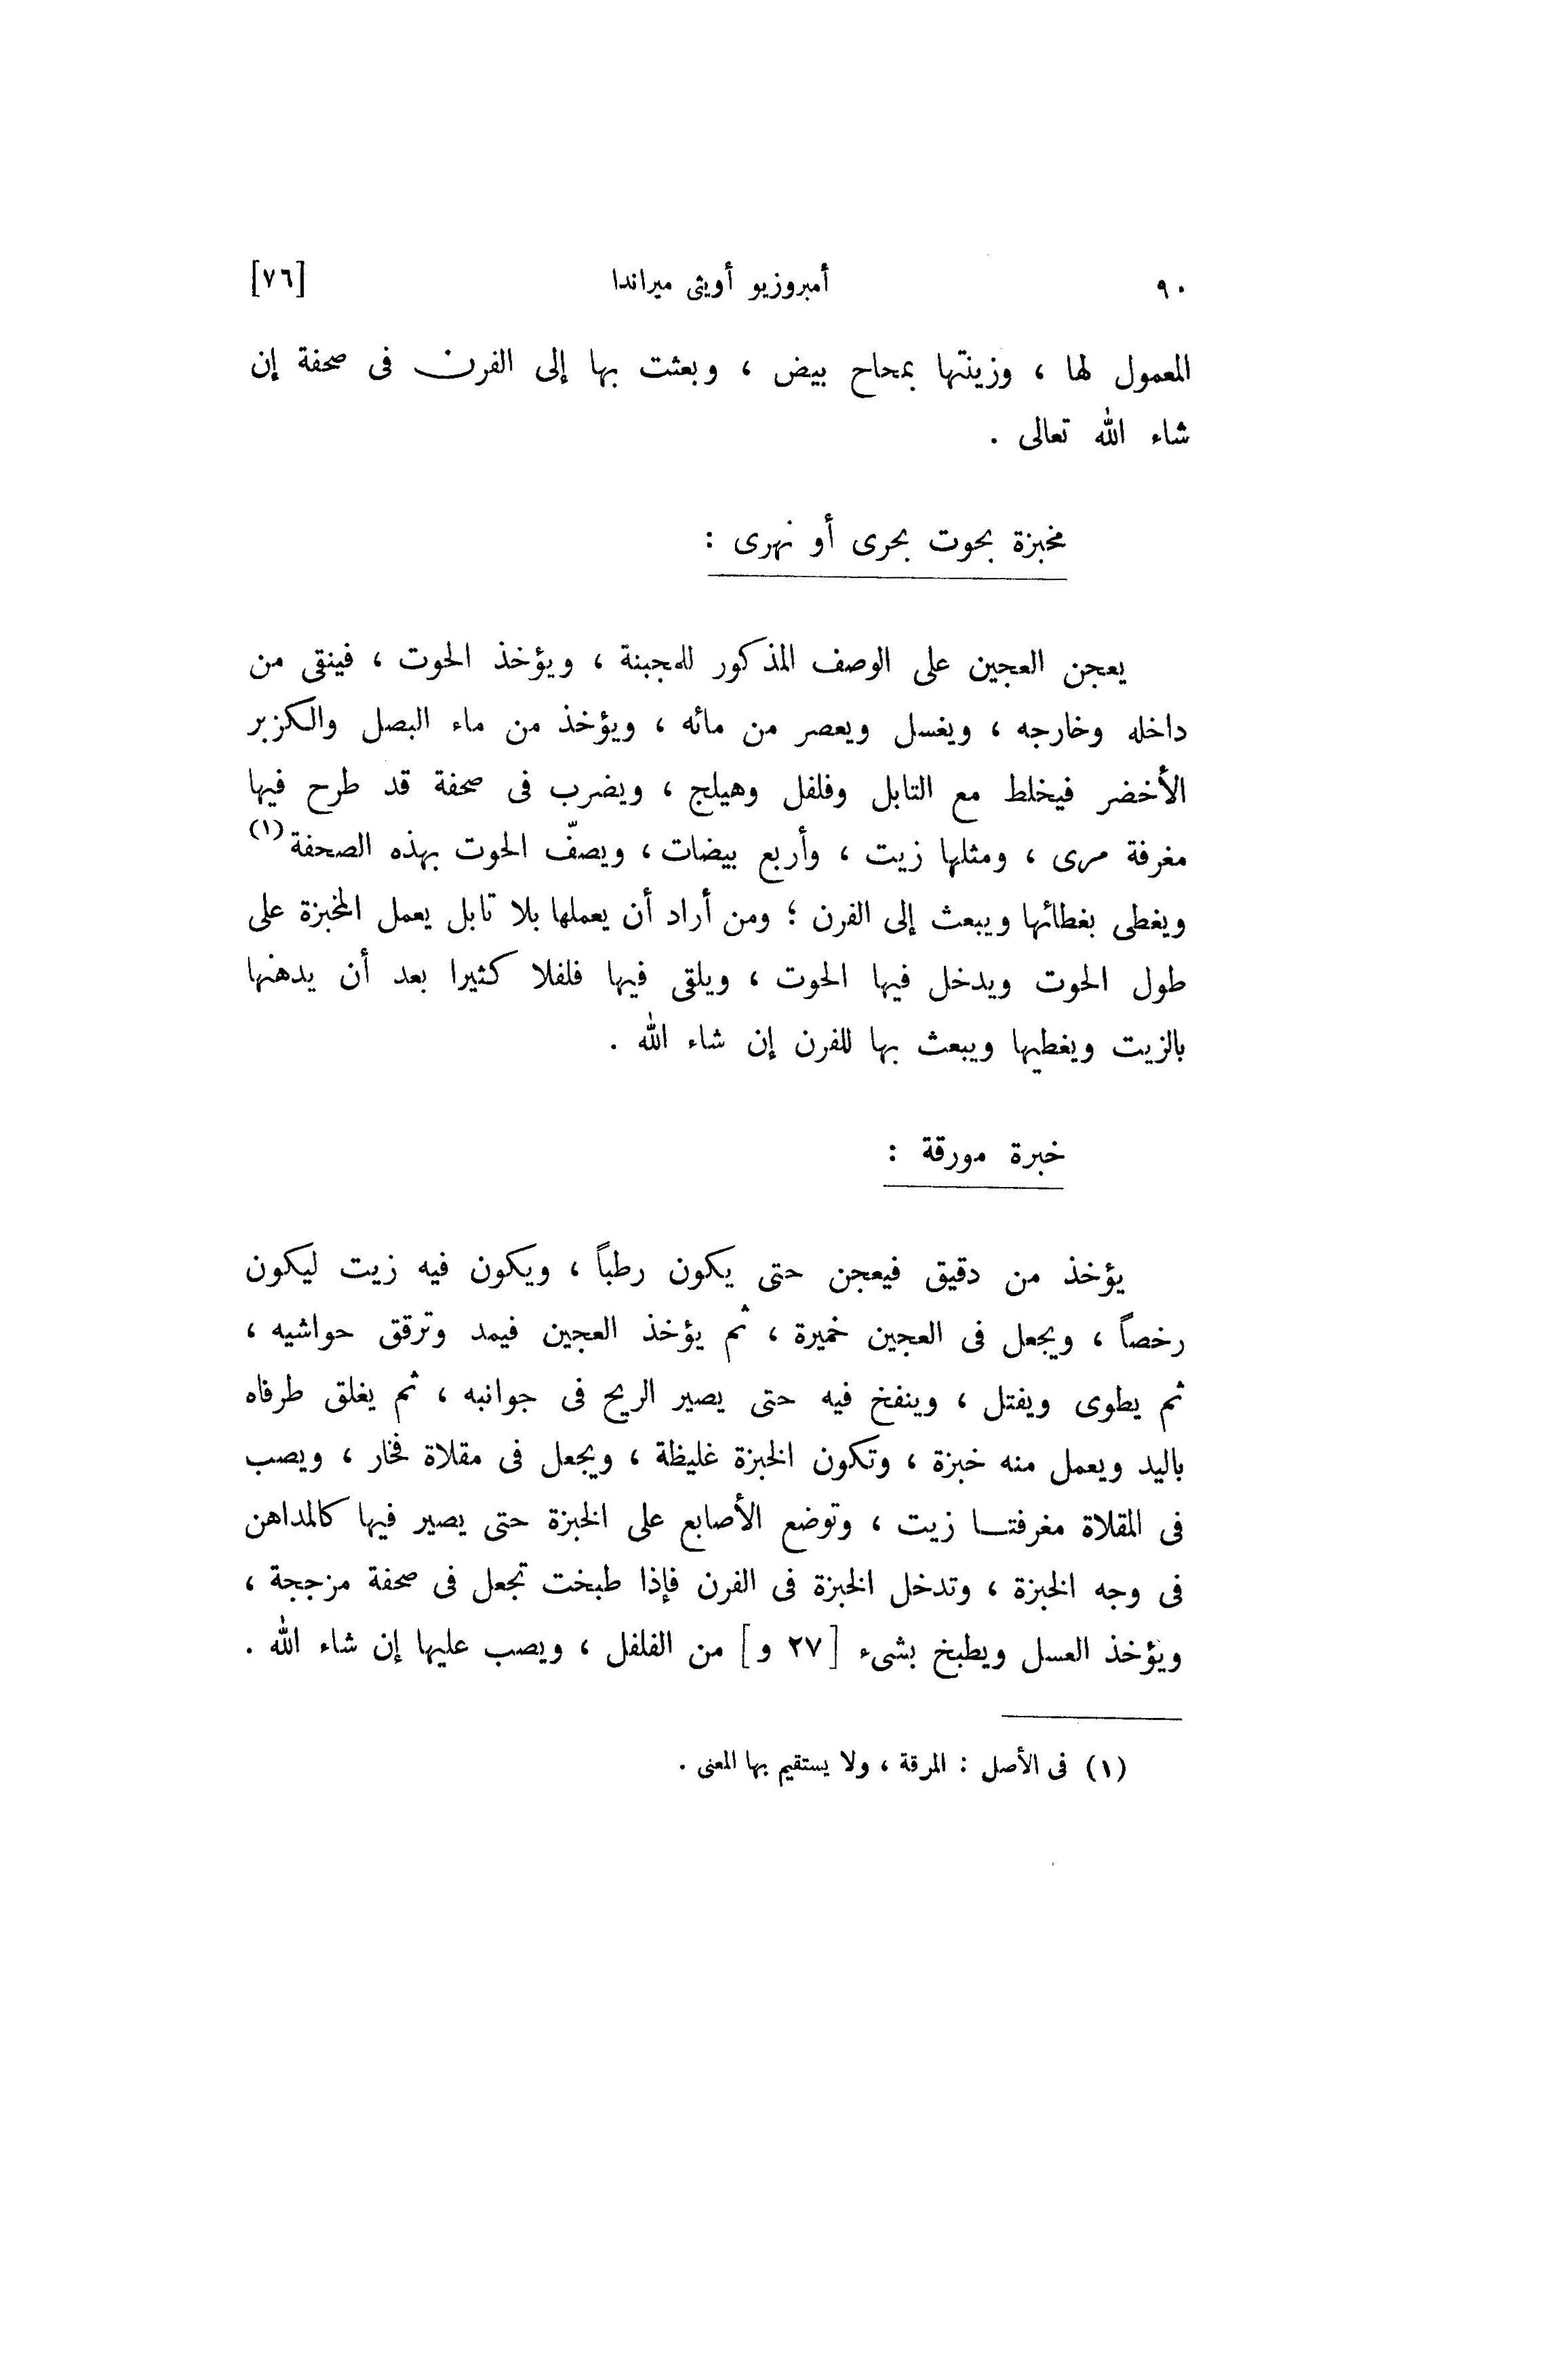 ٩٠ أمبروزيو أويثى ميراندا [٧٦]
المعمول لها ، وزينتها بمحاح بيض ، وبعثت بها إلى الفرن فى صحفة إن
شاء الله تعالى .
مخبزة بحوت بحرى أو نهرى :
يعجن العجين على الوصف المذكور للمجبنة ، ويؤخذ الحوت ، فينقى من
داخله وخارجه ، ويغسل ويعصر من مائه ، ويؤخذ من ماء البصل والكزبر
الأخضر فيخلط مع التابل وفلفل وهيلج ، ويضرب فى صحفة قد طرح فيها
مغرفة مرى ، ومثلها زيت ، وأربع بيضات ، ويصفّ الحوت بهذه الصحفة (١)
ويغطى بغطائها ويبعث إلى الفرن ؛ ومن أراد أن يعملها بلا تابل يعمل المخبزة على
طول الحوت ويدخل فيها الحوت ، ويلقى فيها فلفلا كثيرا بعد أن يدهنها
بالزيت ويغطيها ويبعث بها للفرن إن شاء الله .
خبرة مورقة :
يؤخذ من دقيق فيعجن حتى يكون رطباً ، ويكون فيه زيت ليكون
رخصاً ، ويجعل فى العجين خميرة ، ثم يؤخذ العجين فيمد وترقق حواشيه ،
ثم يطوى ويفتل ، وينفخ فيه حتى يصير الريح فى جوانبه ، ثم يغلق طرفاه
باليد ويعمل منه خبزة ، وتكون الخبزة غليظة ، ويجعل فى مقلاة فخار ، ويصب
فى المقلاة مغرفتـــا زيت ، وتوضع الأصابع على الخبزة حتى يصير فيها كالمداهن
فى وجه الخبزة ، وتدخل الخبزة فى الفرن فإذا طبخت تجعل فى صحفة مزججة ،
ويؤخذ العسل ويطبخ بشىء [٢٧ و] من الفلفل ، ويصب عليها إن شاء الله .
(١) فى الأصل : المرقة ، ولا يستقيم بها المعنى .